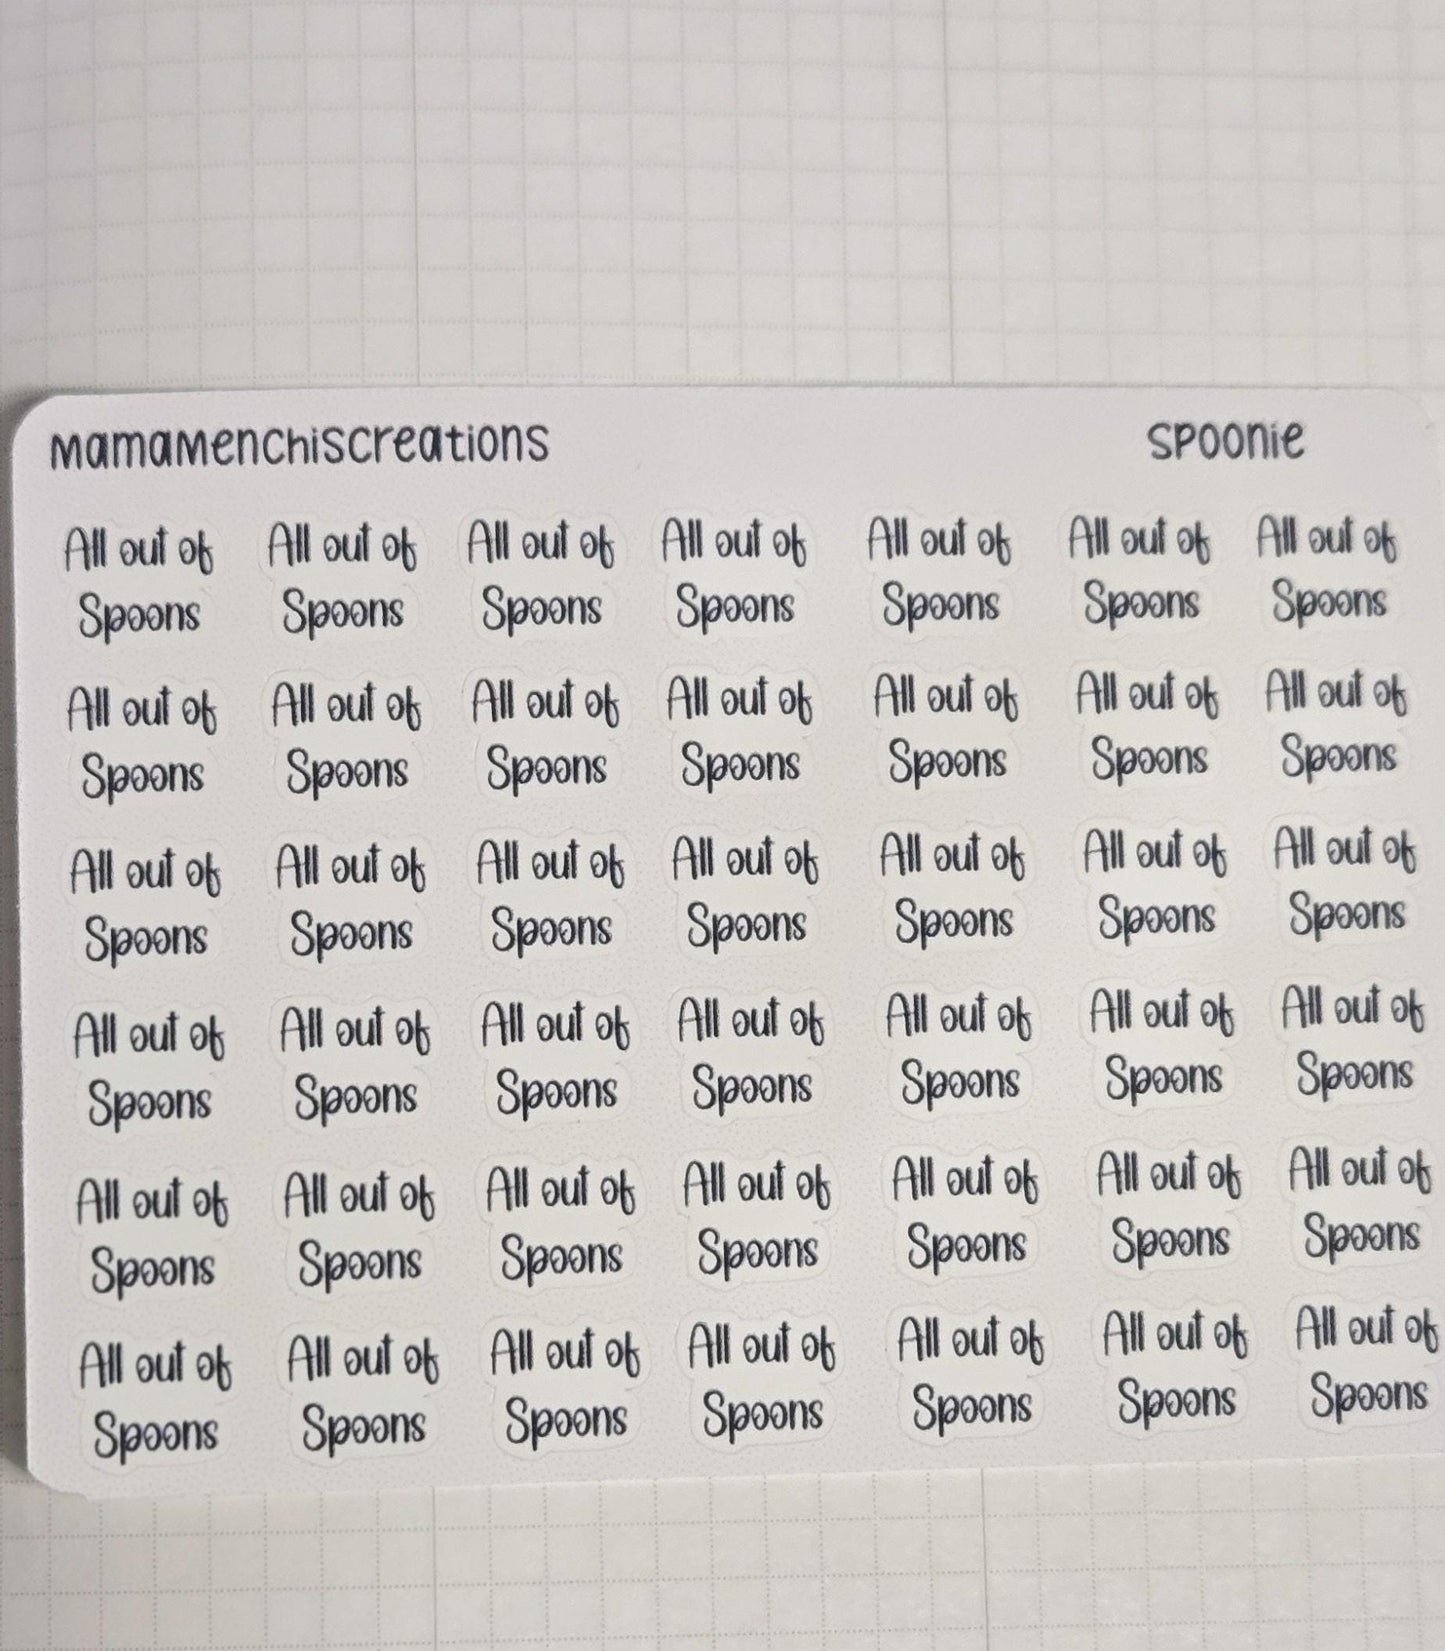 MamaMenchiscreations SPOONIE
All out of All out of All out of All out of All out of All out of All out of
Spoons Spoons Spoons Spoons Spoons Spoons Spoons
All out of All out of All out of All out of All out of All out of All out of
Spoons Spoons Spoons Spoons Spoons Spoons Spoons
All out of All out of All out of All out of All out of All out of All out of
Spoons Spoons Spoons Spoons Spoons Spoons Spoons
All out of All out of All out of All out of All out of All out of All out of
Spoons Spoons Spoons Spoons Spoons Spoons Spoons
All out of All out of All out of All out of All out of All out of All out of
Spoons Spoons Spoons Spoons Spoons Spoons Spoons
All out of All out of All out of All out of All out of All out of All out of
Spoons Spoons Spoons Spoons Spoons Spoons Spoons